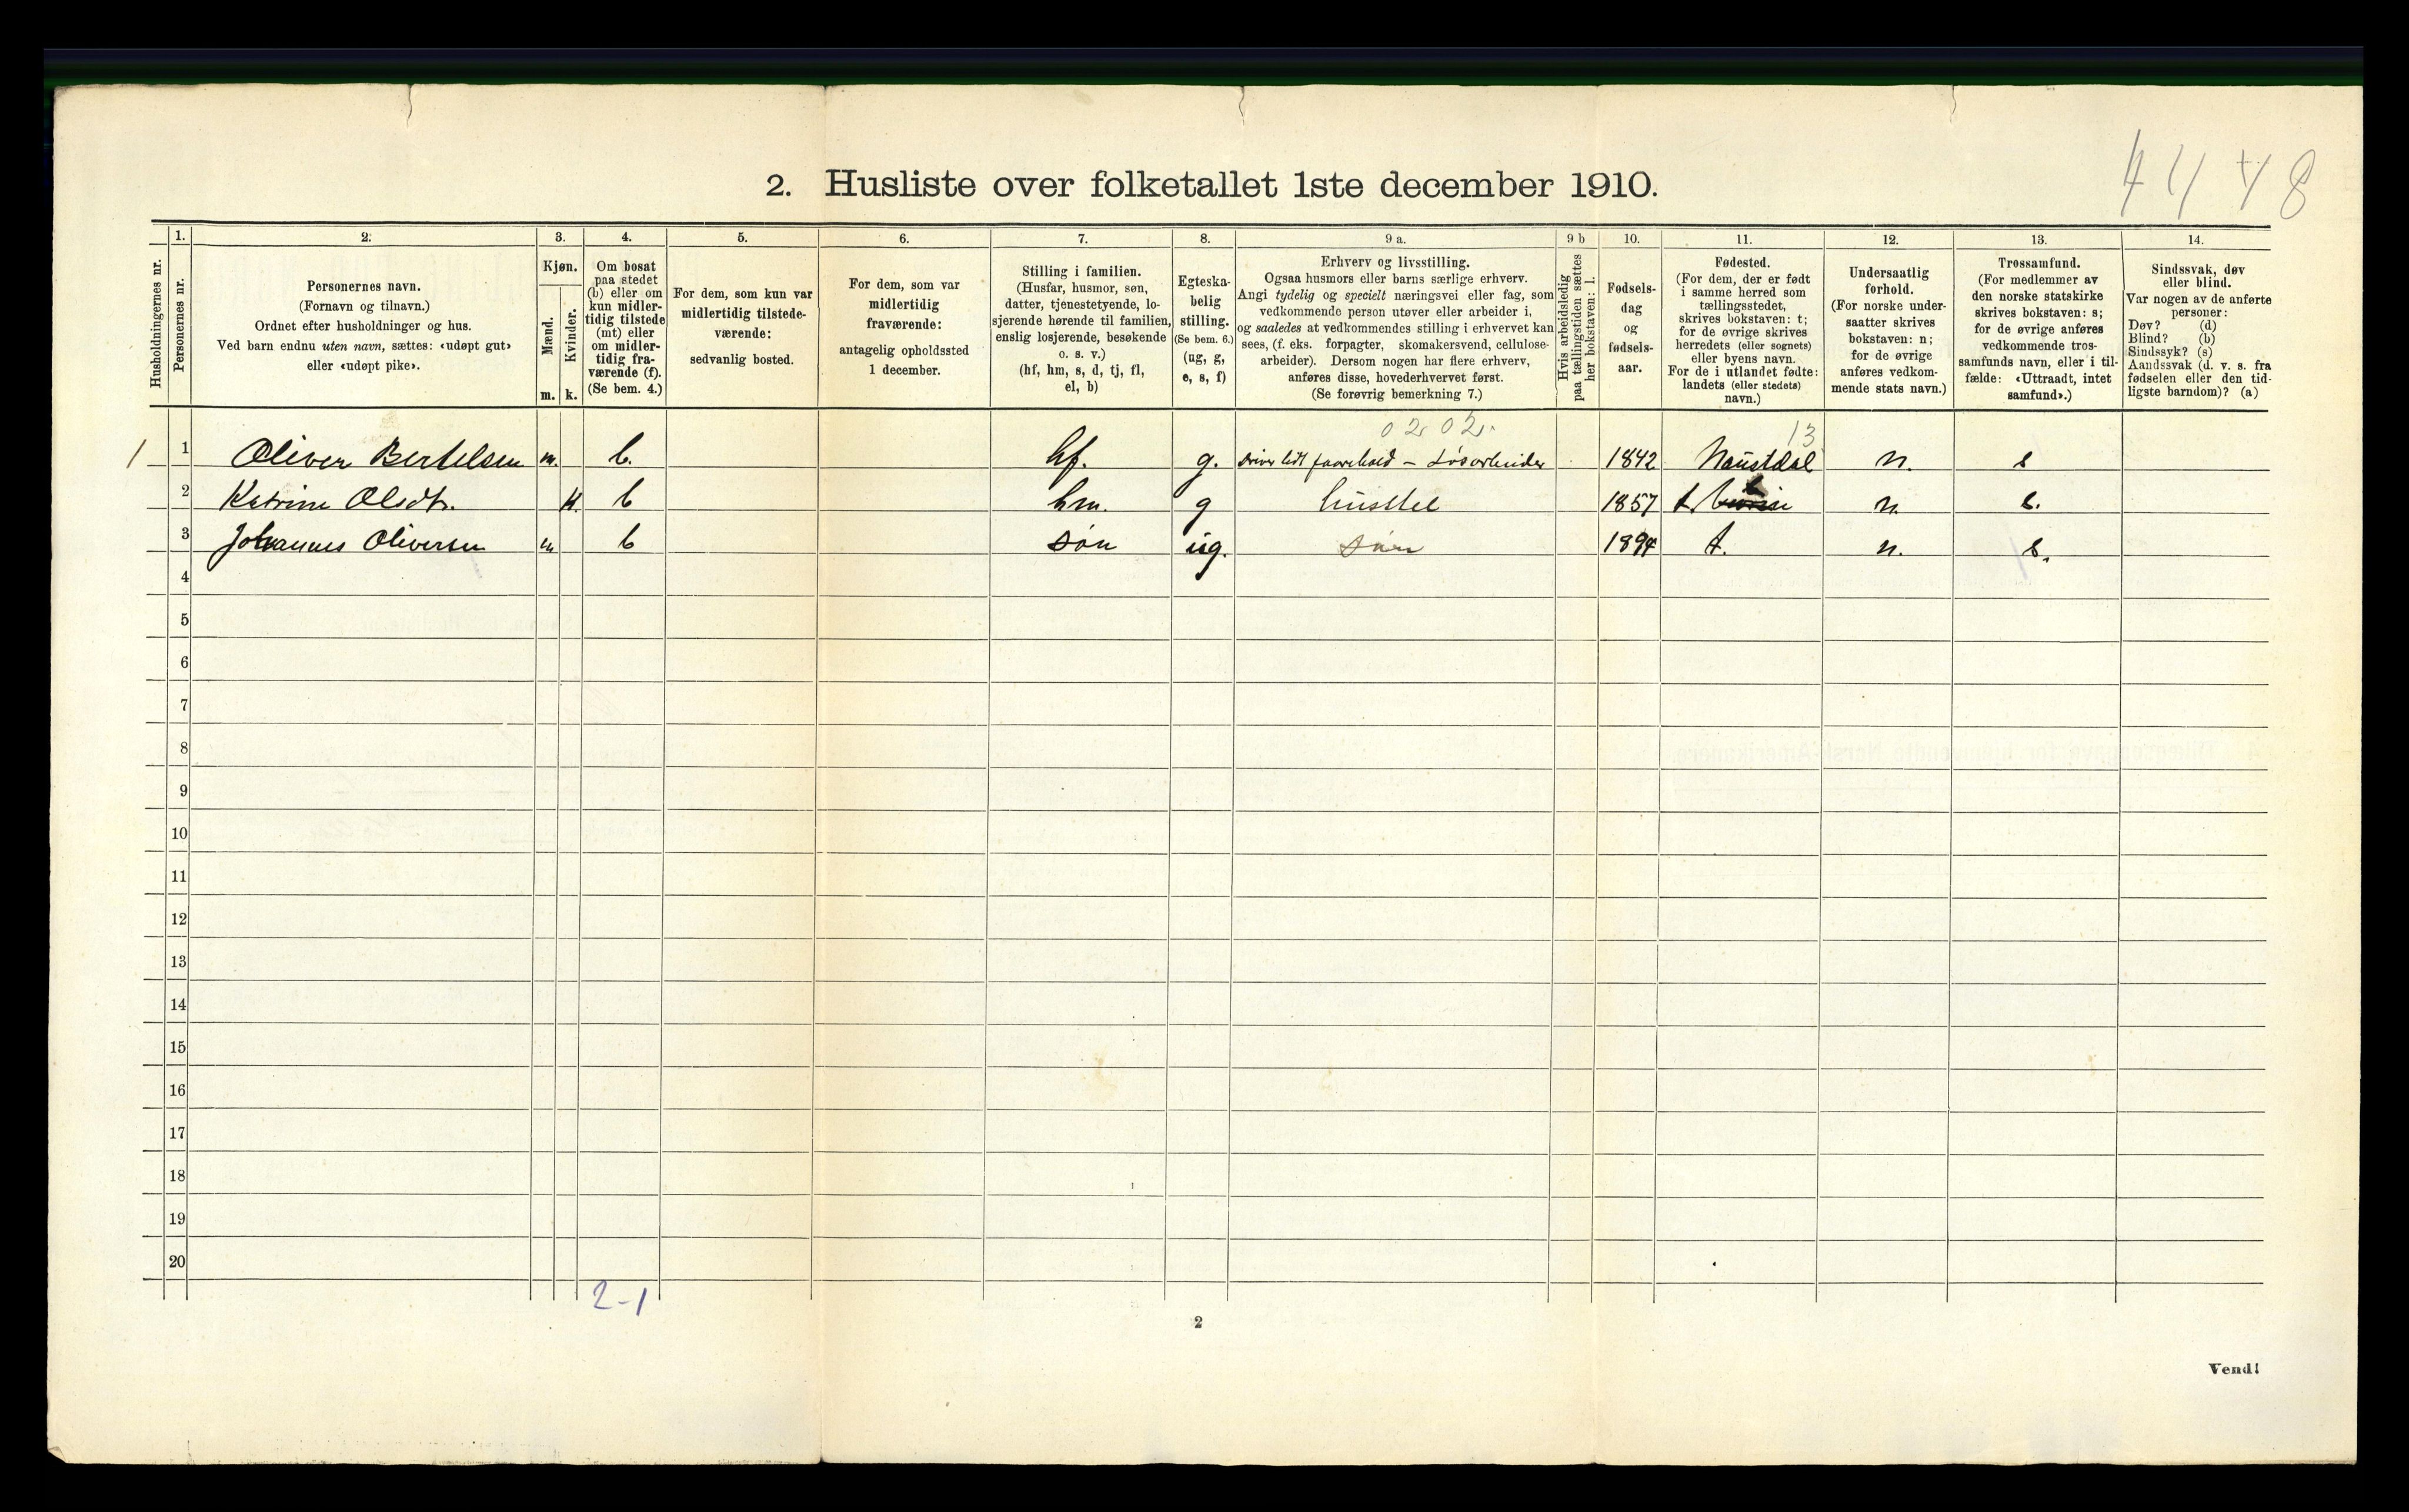 44 48
2. Husliste over folketallet 1ste december 1910.
Husholdningernes nr.
1.
Personernes nr.
2.
Personernes navn.
(Fornavn og tilnavn.)
Ordnet efter husholdninger og hus.
Ved barn endnu uten navn, sættes: «udøpt gut»
eller «udøpt pike».
3.
Kjøn.
Mænd.
Kvinder.
m. k.
4.
Om bosat
paa stedet
(b) eller om
kun midler-
tidig tilstede
(mt) eller
om midler-
tidig fra-
værende (f).
(Se bem. 4.)
5.
For dem, som kun var
midlertidig tilstede-
værende:
sedvanlig bosted.
6.
For dem, som var
midlertidig
fraværende:
antagelig opholdssted
1 december.
7.
Stilling i familien.
(Husfar, husmor, søn,
datter, tjenestetyende, lo-
sjerende hørende til familien,
enslig losjerende, besøkende
o. s. v.)
(hf, hm, s, d, tj, fl,
el, b)
8.
Egteska-
belig
stilling.
(Se bem. 6.)
(ug, g,
e, s, f)
9 a.
Erhverv og livsstilling.
Ogsaa husmors eller barns særlige erhverv.
Angi tydelig og specielt næringsvei eller fag, som
vedkommende person utøver eller arbeider i,
og saaledes at vedkommendes stilling i erhvervet kan
sees, (f. eks. forpagter, skomakersvend, cellulose-
arbeider). Dersom nogen har flere erhverv,
anføres disse, hovederhvervet først.
(Se forøvrig bemerkning 7.)
9 b
Hvis arbeidsledig
paa tællingstiden sættes
her bokstaven: l.
10.
Fødsels-
dag
og
fødsels-
aar.
11.
Fødested.
(For dem, der er født
i samme herred som
tællingsstedet,
skrives bokstaven: t;
for de øvrige skrives
herredets (eller sognets)
eller byens navn.
For de i utlandet fødte:
landets (eller stedets)
navn.)
12.
Undersaatlig
forhold.
(For norske under-
saatter skrives
bokstaven: n;
for de øvrige
anføres vedkom-
mende stats navn.)
13.
Trossamfund.
(For medlemmer av
den norske statskirke
skrives bokstaven: s;
for de øvrige anføres
vedkommende tros-
samfunds navn, eller i til-
fælde: «Uttraadt, intet
samfund».)
14.
Sindssvak, døv
eller blind.
Var nogen av de anførte
personer:
Døv? (d)
Blind? (b)
Sindssyk? (s)
Aandssvak (d. v. s. fra
fødselen eller den tid-
ligste barndom)? (a)
0202. 13
1 1 Oliver Bertelsen m. b. hf. g. Driver lidt faarehold – Løsarbeider 1842 Naustdal n. s
2 Katrine Olsdtr. k. b hm. g husstel 1857 t. n. s.
3 Johannes Oliversen m b søn ug. søn 1894 t. n. s.
4
5
6
7
8
9
10
11
12
13
14
15
16
17
18
19
20
2-1
2
Vend!